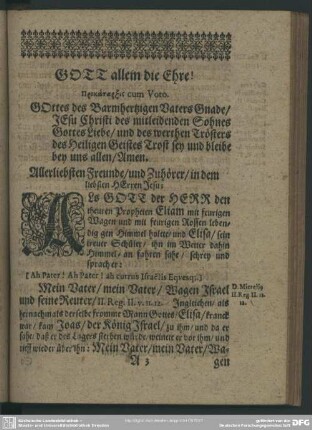 GOTT allein die Ehre!
cum Voto.
GOttes des Barmhertzigen Vaters Gnade/
JEsu Christi des mitleidenden Sohnes
Gottes Liebe/ und des werthen Trösters
des Heiligen Geistes Trost sey und bleibe
bey uns allen/ Amen.
Allerliebsten Freunde/ und Zuhörer/ in dem
liebsten HErren Jesu:
ALs GOTT der HERR den
theuren Propheten Eliam mit feurigen
Wagen und mit feurigen Rossen leben-
dig gen Himmel holete/ und Elisa/ sein
treuer Schüler/ ihn im Wetter dahin
Himmel-an fahren sahe/ schrey und
sprach er:
[Ah Pater! Ah Pater! ah currus Israëlis Eqvesq;]
Mein Vater/ mein Vater/ Wagen Israel
und seine Reuter/ II. Reg. II. v. 11. 12. Ingleichen/ als
hernachmals derselbe fromme Mann Gottes/ Elisa/ kranck
war/ kam Joas, der König Israel/ zu ihm/ und da er
sahe/ daß er des Lagers sterben würde/ weinet er vor ihm/ und
rieff wieder über ihn: Mein Vater/ mein Vater/ Wa-
D. Mirus
II. Reg. II. 11.
12.
A 3
gen